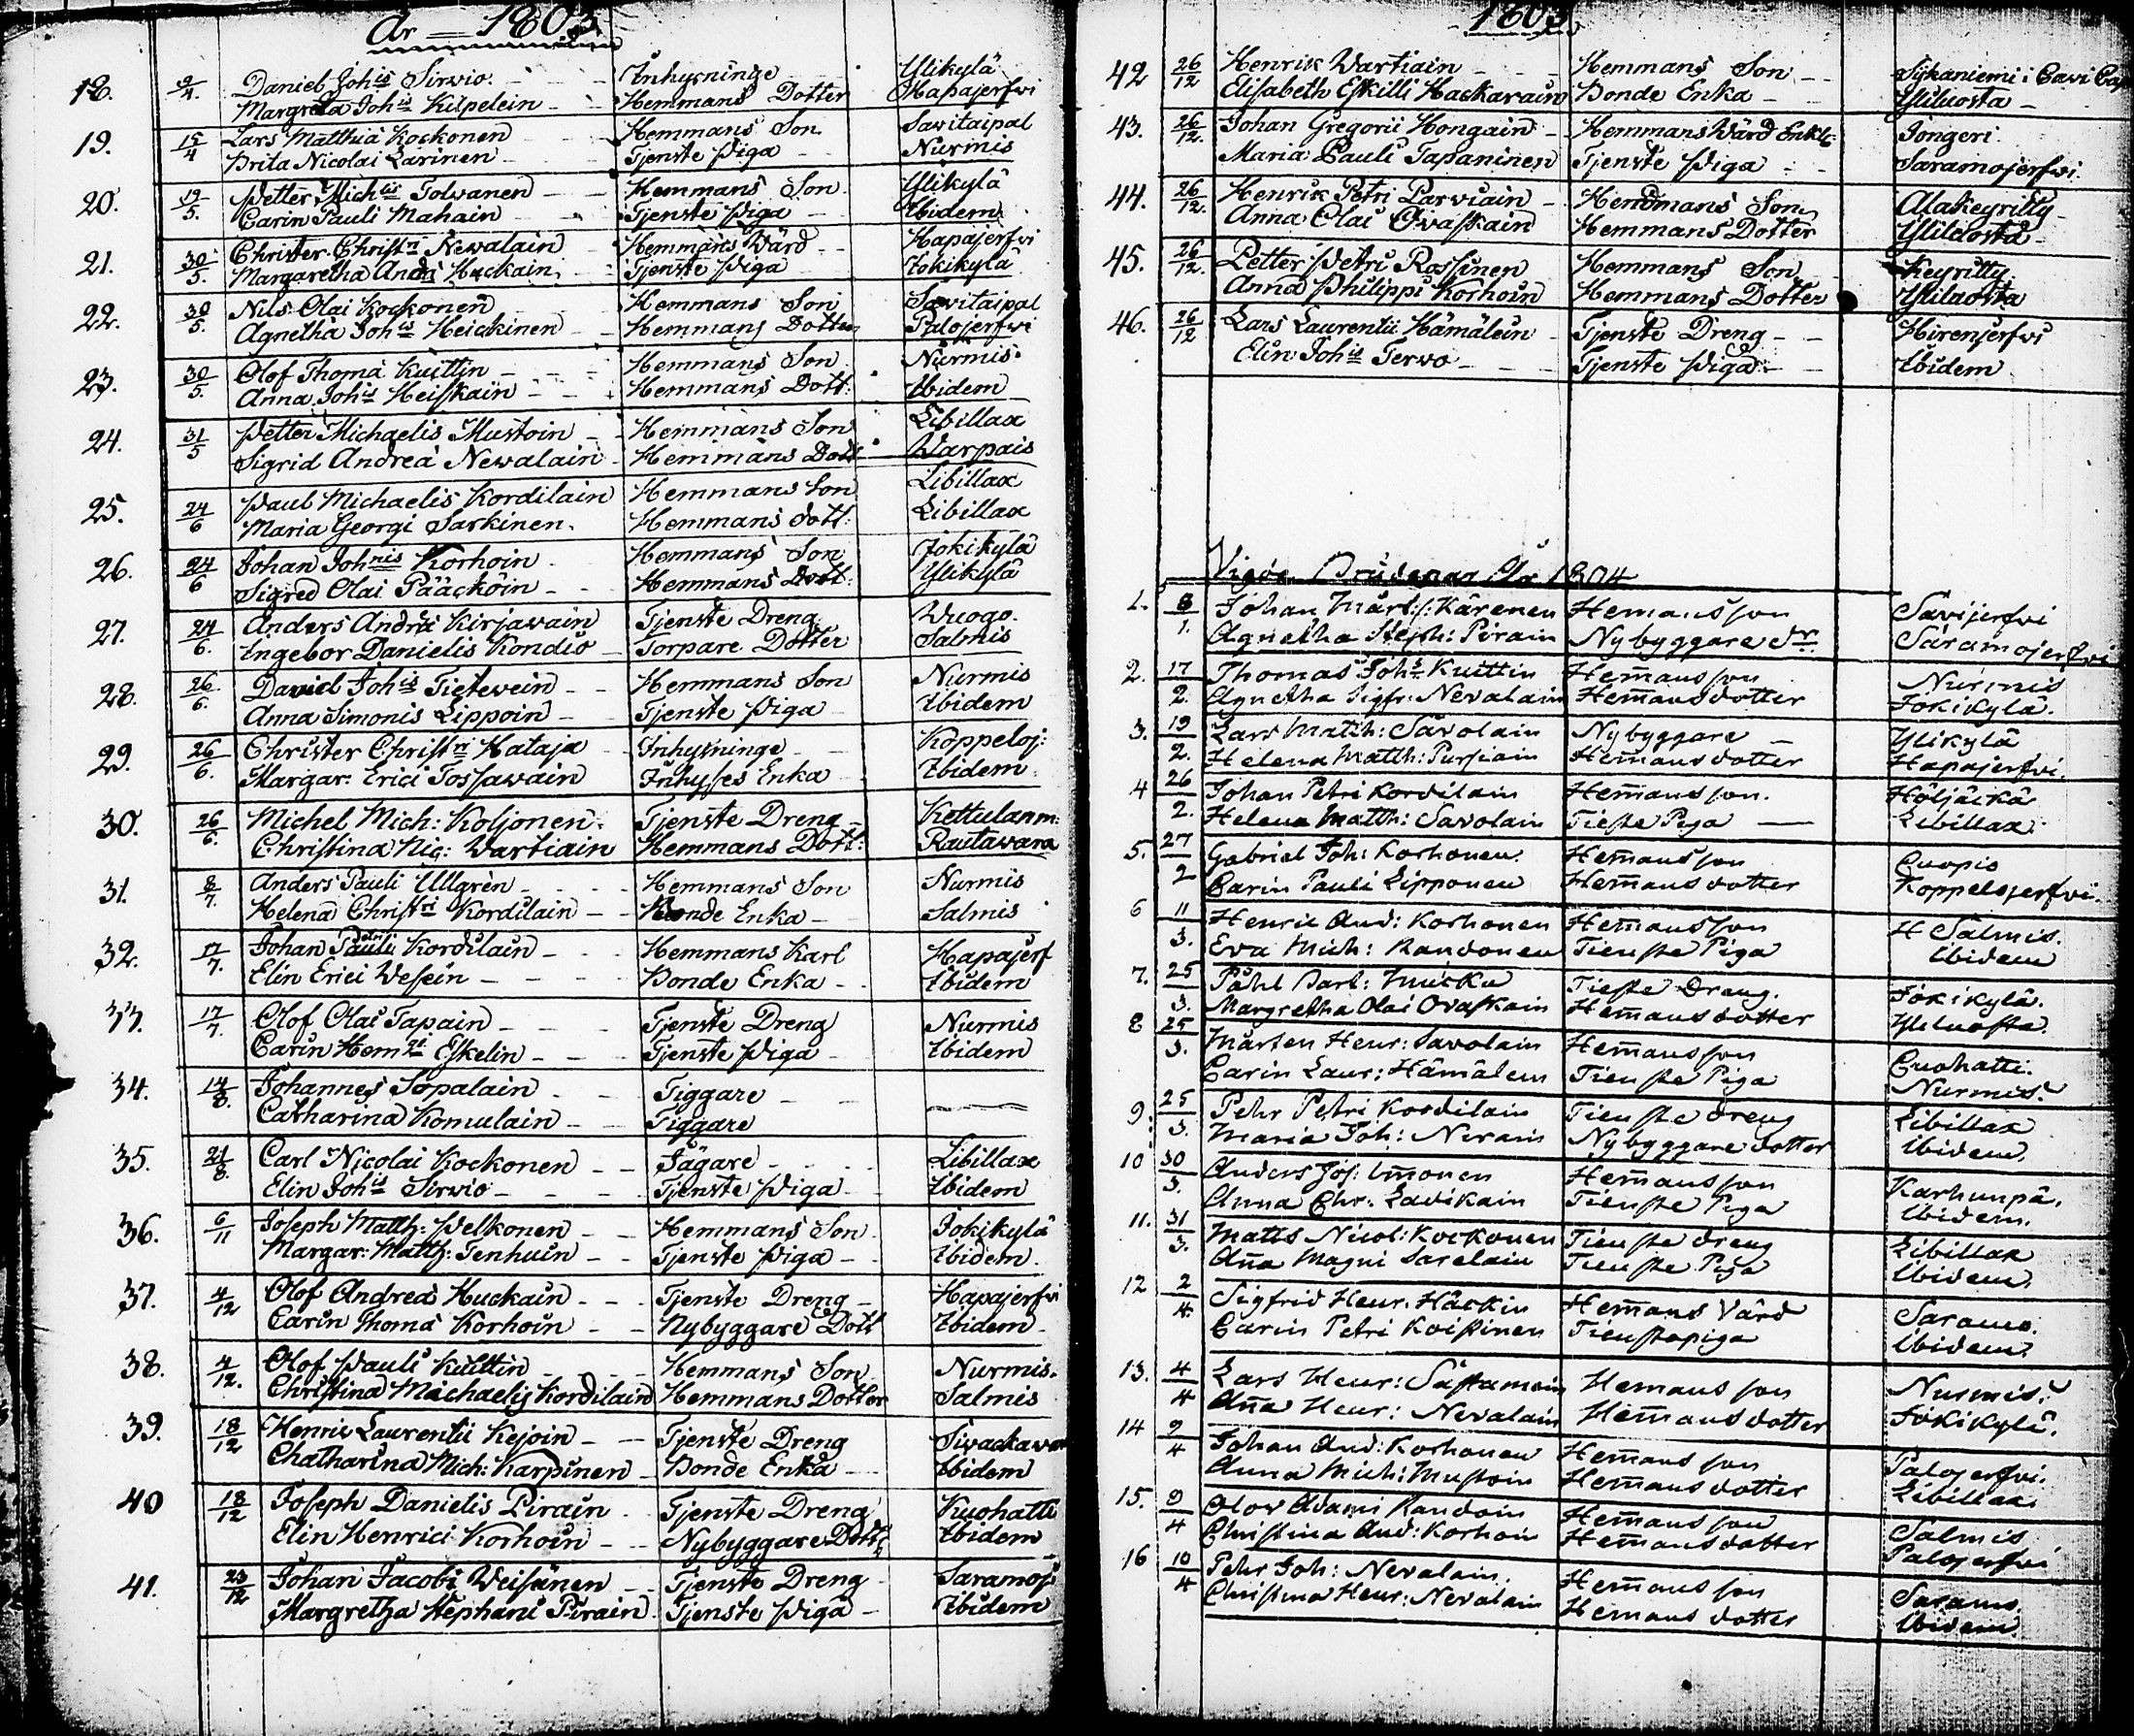 År 1803
18. 9/4. Daniel Joh:is Sirvio. Inhysninge Ylikylä
Margreta Joh:is Kilpelein Hemmans Dotter Hapajerfvi
19. 15/4 Lars Matthiä Kockonen Hemmans Son Savitaipal
Brita Nicolai Larinen Tjenste Piga Nurmis
20. 19/5. Petter Mich:lis Tolvanen Hemmans Son Ylikylä
Carin Pauli Mahain Tjenste Piga Ibidem
21. 30/5. Christer Christ:ri Nevalain Hemmans Wärd Hapajerfvi
Margaretha Andr. Huckain Tjenste Piga Jokikylä
22. 30/5. Nils Olai Kockonen Hemmans Son Savitaipal
Agnetha Joh:is Heickinen Hemmans Dotter Palojerfvi
23. 30/5. Olof Thomä Kuittin Hemmans Son Nurmis
Anna Joh:is Heiskain Hemmans Dott: Ibidem
24. 31/5 Petter Michaelis Mustoin Hemmans Son Libillax
Sigrid Andreä Newalain Hemmans Dott: Warpais
25. 24/6 Paul Michaelis Kordilain Hemmans Son Libillax
Maria Georgi Sarkinen Hemmans dott: Libillax
26. 24/6 Johan Joh:nis Korhoin Hemmans Son Jokikylä
Sigred Olai Pääcköin Hemmans Dott: Ylikylä
27. 24/6. Anders Andrä Kirjavain Tjenste Dreng Wuogo.
Ingebor Danielis Kondio Torpare Dotter Salmis
28. 26/6. David Joh:is Tietevein Hemmans Son Nurmis
Anna Simonis Lippoin Tjenste Piga Ibidem
29. 26/6. Christer Christ:ri Hataja Inhysninge Koppeloj:
Margar: Erici Tossavain Inhyses Enka Ibidem
30. 26/6. Michel Mich: Koljonen Tjenste Dreng Kettulanm:
Christina Nic: Wartiain Hemmans Dott: Rautavara
31. 8/7. Anders Pauli Ullgrèn Hemmans Son Nurmis
Helena Christ:ri Kordilain Bonde Enka Salmis
32. 17/7. Johan Pauli Kordilain Hemmans Karl Hapajerf
Elin Erici Wesein Bonde Enka Ibidem
33. 17/7. Olof Olai Tapain Tjenste Dreng Nurmis
Carin Eskelin Tjenste Piga Ibidem
34. 14/8. Johannes Sopalain Tiggare
Catharina Komulain Tiggare
35. 21/8. Carl Nicolai Kockonen Jägare Libillax
Elin Joh:is Sirvio Tjenste Piga Ibidem
36. 6/11 Joseph Matth: Pelkonen Hemmans Son Jokikylä
Margar: Matth: Tenhuin Tjenste Piga Ibidem
37. 4/12 Olof Andreä Huckain Tjenste Dreng Hapajerfvi
Carin Thomä Korhoin Nybyggare Dott Ibidem
38. 4/12. Olof Pauli Kuittin Hemmans Son Nurmis.
Christina Michaelis Kordilain Hemmans Dotter Salmis
39. 18/12 Henric Laurentii Kejoin Tjenste Dreng Sivackava
Chatharina Mich: Karpinen Bonde Enka Ibidem
40 18/12 Joseph Danielis Pirain Tjenste Dreng Kuohatti
Elin Henrici Korhoin Nybyggare Dott: Ibidem
41. 23/12 Johan Jacobi Weisänen Tjenste Dreng Saramoj
Margretha Stephani Pirain Tjenste Piga Ibidem
1803
42 26/12 Henrik Wartiain Hemmans Son Sykaniemi i
Elisabeth Eskilli Hackarain Bonde Enka Yliluosta
43. 26/12. Johan Gregorii Hongain Hemmans Wärd Enkl: Jongeri
Maria Pauli Tapaninen Tjenste Piga Saramojerfvi
44. 26/12. Henrik Petri Parviain Hemmans Son Alakeyritty
Anna Olai Ovaskain Hemmans Dotter Yliluosta
45. 26/12. Petter Petri Rossinen Hemmans Son Keyritty
Anna Philippi Korhoin Hemmans Dotter Ylilaosta
46. 26/12 Lars Laurentii Hämälein Tjenste Dreng Hirenjerfvi
Elin Joh:is Tervo Tjenste Piga Ibidem
Vigde Brudepar År 1804
1. 6/1. Johan Mårt: Kärenen Hemansson Savijerfvi
Agnetha Steph: Pirain Nybyggare dr. Saramojerfvi
2. 17/2. Thomas Joh:s Kuittin Hemans son Nurmis
Agnetha Sigfr: Nevalain Hemansdotter Jokikylä.
3. 19/2. Lars Matth: Savolain Nybyggare Ylikylä
Helena Matth: Pursiain Hemansdotter Hapajerfvi.
4 26/2. Johan Petri Kordilain Hemansson. Höljäckä
Helena Matth: Savolain Tieste Piga Libillax
5. 27/2 Gabriel Joh: Korhonen Hemansson Cuopio
Carin Pauli Lipponen Hemansdotter Koppelojerfvi.
6 11/3. Henric And: Korhonen Hemansson H Salmis.
Eva Mich: Randonen Tienste Piga Ibidem
7. 25/3. Påhl Bart: Hucka Tieste Dräng. Jokikylä.
Margretha Olai Ovaskain Hemansdotter Yliluosta.
8 25/3. Mårten Henr: Savolain Hemansson Cuohatti.
Carin Laur: Hämälein Tienste Piga Nurmes.
9. 25/3. Pehr Petri Kordilain Tienste dreng Libillax
Maria Joh: Nirain Nybyggare dotter Ibidem.
10 30/3. Anders Joh: Immonen Hemansson Karhunpä.
Anna Chr: Lavikain Tienste Piga Ibidem.
11. 31/3. Matts Nicol: Kockonen Tienste dreng Libillax
Aña Magni Sarelain Tienste Piga Ibidem.
12 2/4. Sigfrid Henr: Häckin Hemans Värd Saramo.
Carin Petri Koistinen Tienstepiga Ibidem.
13. 4/4 Lars Henr: Sästamoin Hemans son Nurmis.
Aña Henr: Nevalain Hemansdotter Jokikylä.
14 9/4 Johan And: Korhonen Hemans son Palojerfvi.
Anna Mich: Mustoin Hemansdotter Libillax.
15. 9/4 Olov Adami Randoin Hemans son Salmis
Christina And: Korhoin Hemansdotter Palojerfvi
16 10/4 Pehr Joh: Nevalain. Hemans son Saramo.
Christina Henr: Nevalain Hemans dotter Ibidem.